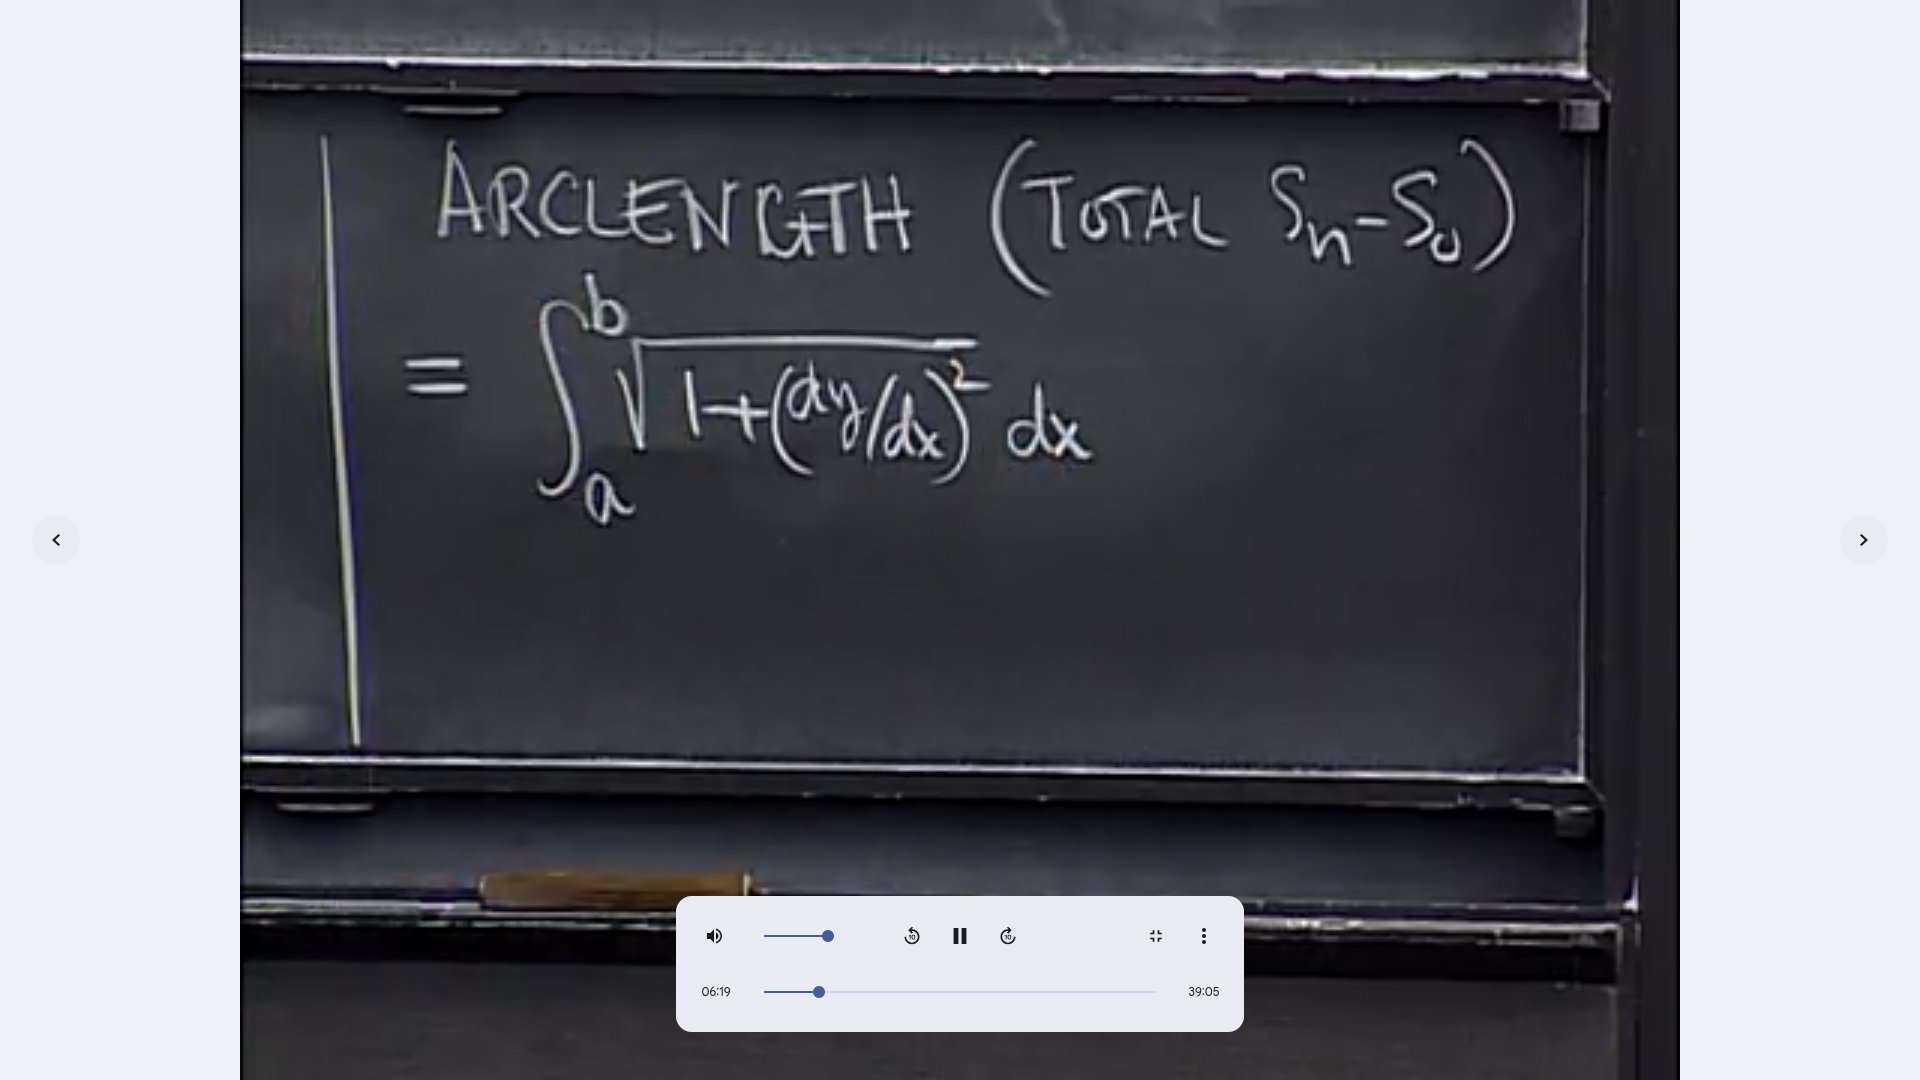 ARCLENGTH (TOTAL Sₙ-S₀)
= ∫ₐᵇ √(1+(dy/dx)²) dx
10 10
06:19 39:05